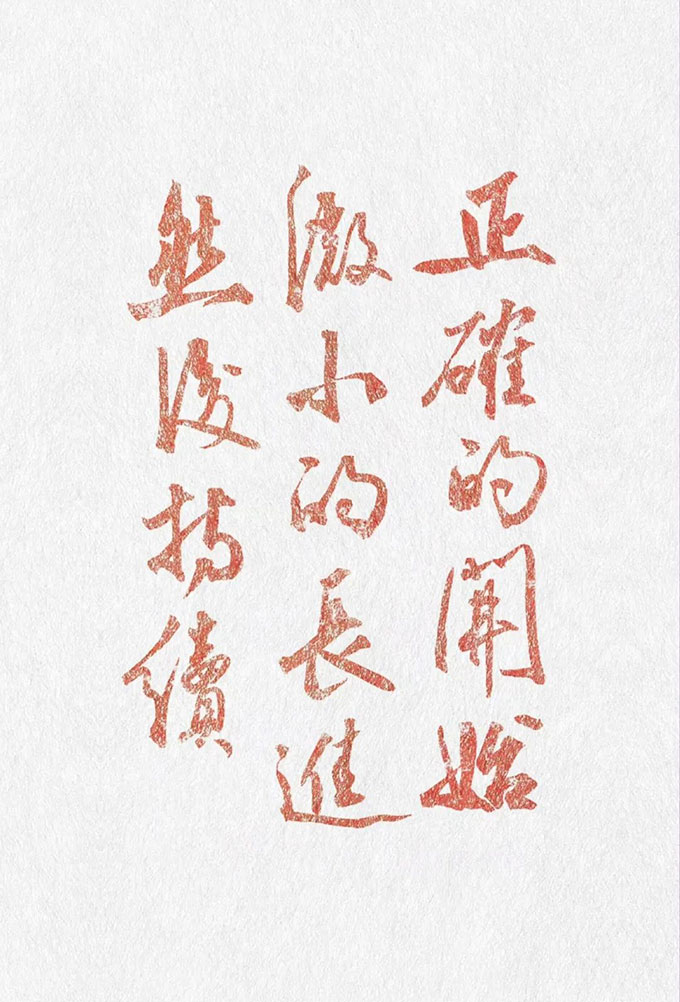 正確的開始
微小的長進
然後持續